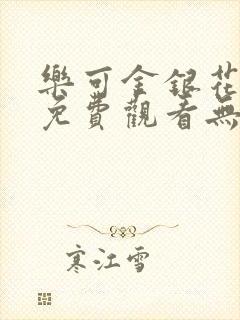 樂可金銀花
免費觀看無
寒江雪